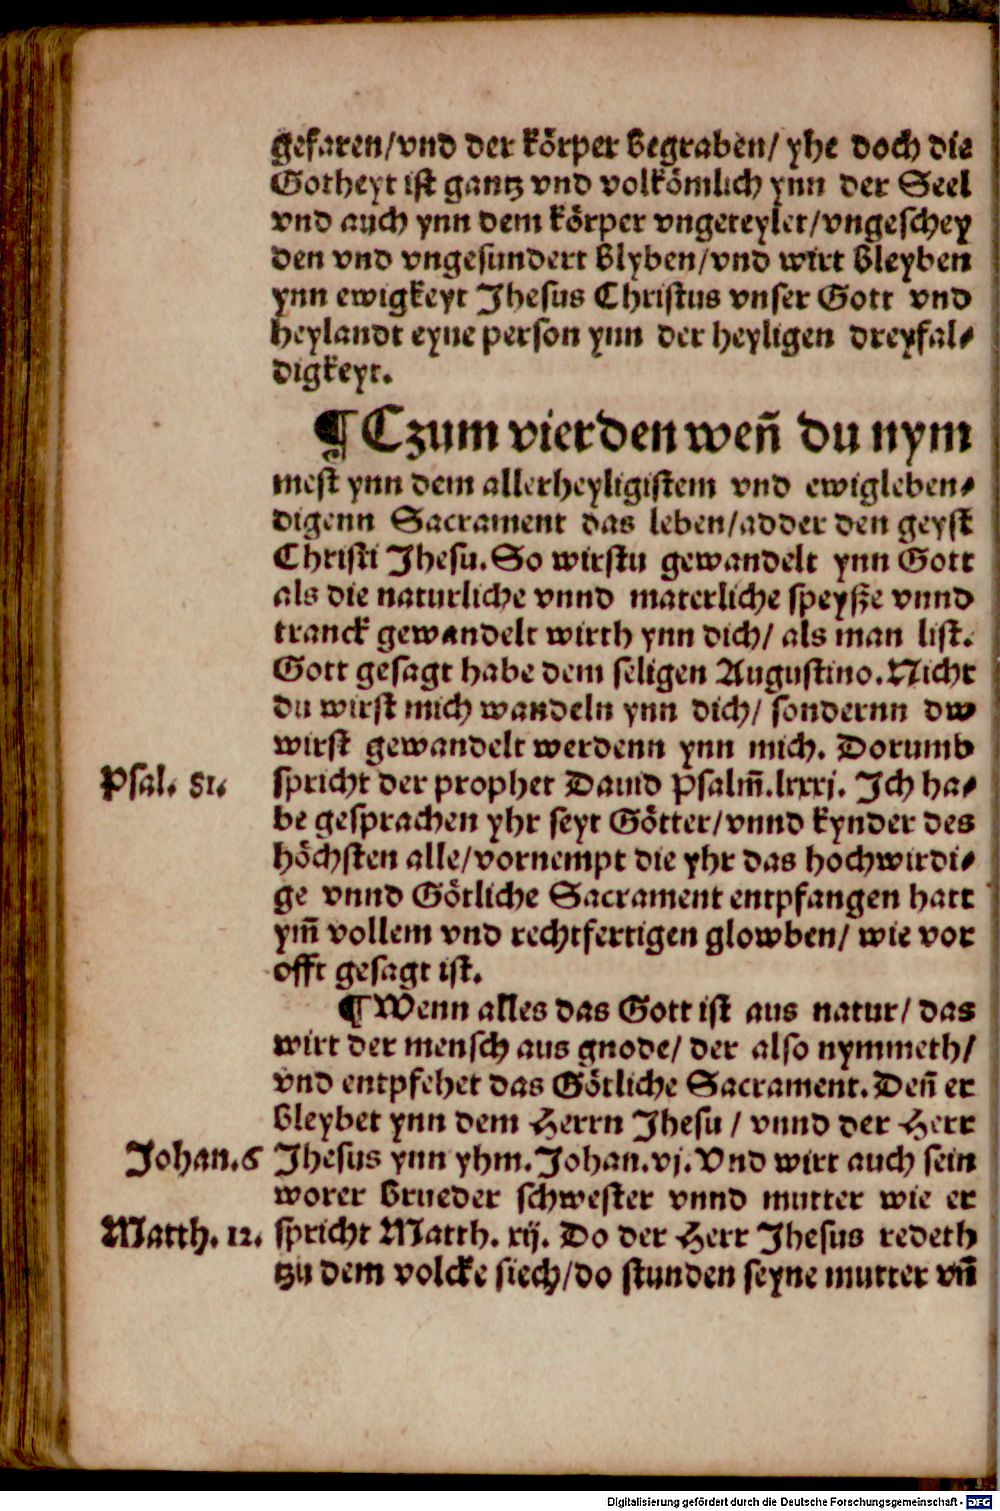 gefaren/vnd der körper begraben/ yhe doch die
Gotheyt ist gantz vnd volkömlich ynn der Seel
vnd auch ynn dem körper vngeteylet/vngeschey
den vnd vngesundert blyben/vnd wirt bleyben
ynn ewigkeyt Jhesus Christus vnser Gott vnd
heylandt eyne person ynn der heyligen dreyfal⸗
digkeyt.
¶ Czum vierden weñ du nym
mest ynn dem allerheyligistem vnd ewigleben⸗
digenn Sacrament das leben/adder den geyst
Christi Jhesu. So wirstu gewandelt ynn Gott
als die naturliche vnnd materliche speysze vnnd
tranck gewandelt wirth ynn dich/ als man list.
Gott gesagt habe dem seligen Augustino. Nicht
du wirst mich wandeln ynn dich/ sondernn dw
wirst gewandelt werdenn ynn mich. Dorumb
Psal. 81. spricht der prophet Dauid Psalm̃.lxxxj. Ich ha⸗
be gesprachen yhr seyt Götter/vnnd kynder des
höchsten alle/vornempt die yhr das hochwirdi⸗
ge vnnd Götliche Sacrament entpfangen hatt
ym̃ vollem vnd rechtfertigen glowben/ wie vor
offt gesagt ist.
¶ Wenn alles das Gott ist aus natur/ das
wirt der mensch aus gnode/ der also nymmeth/
vnd entpfehet das Götliche Sacrament. Deñ er
bleybet ynn dem Herrn Jhesu / vnnd der Herr
Johan.6 Jhesus ynn yhm. Johan.vj. Vnd wirt auch sein
worer brueder schwester vnnd mutter wie er
Matth. 12. spricht Matth. xij. Do der Herr Jhesus redeth
tzu dem volcke siech/do stunden seyne mutter vñ
Digitalisierung gefördert durch die Deutsche Forschungsgemeinschaft - DFG